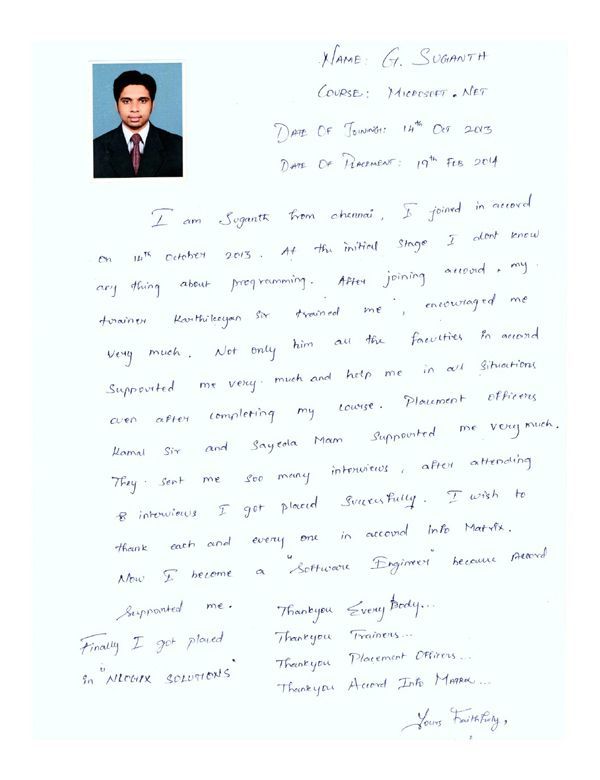 NAME: G. SUGANTH
COURSE: MICROSOFT.NET
DATE OF JOINING: 14th OCT 2013
DATE OF PLACEMENT: 19th FEB 2014
I am Suganth from chennai, I joined in accord
on 14th october 2013. At the initial stage I dont know
any thing about programming. After joining accord, my
trainer Karthikeyan sir trained me, encouraged me
very much. Not only him all the faculties in accord
supported me very much and help me in all situations
even after completing my course. Placement officers
Kamal Sir and Sayeda Mam supported me very much.
They sent me soo many interviews, after attending
8 interviews I got placed successfully. I wish to
thank each and every one in accord Info Matrix.
Now I become a "Software Engineer" because Accord
supported me.
Thankyou Every Body...
Finally I got placed
in "NLOGIX SOLUTIONS"
Thankyou Trainers...
Thankyou Placement Officers...
Thankyou Accord Info Matrix...
Yours Faithfully,